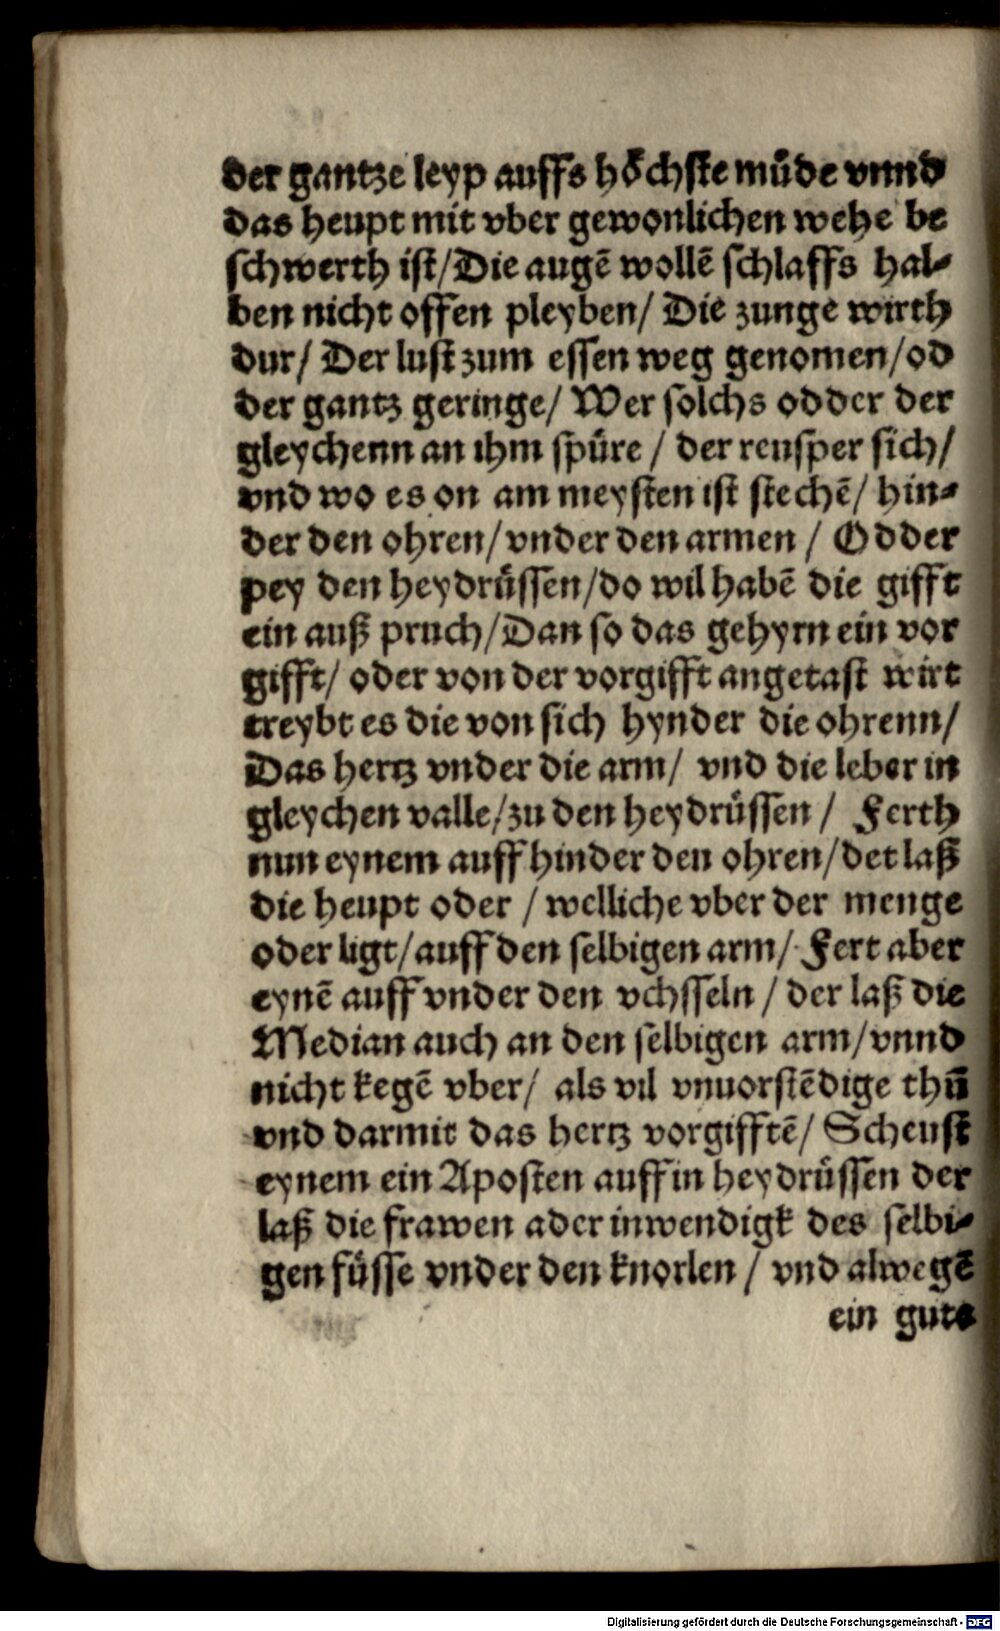 der gantze leyp auffs hoͤchste muͤde vnnd
das heupt mit vber gewonlichen wehe be
schwerth ist/Die augē wollē schlaffs hal⸗
ben nicht offen pleyben/ Die zunge wirth
dur/ Der lust zum essen weg genomen/od
der gantz geringe/ Wer solchs odder der
gleychenn an ihm spuͤre / der reusper sich/
vnd wo es on am meysten ist stechē/ hin⸗
der den ohren/vnder den armen / Odder
pey den heydruͤssen/do wil habē die gifft
ein auß pruch/Dan so das gehyrn ein vor
gifft/ oder von der vorgifft angetast wirt
treybt es die von sich hynder die ohrenn/
Das hertz vnder die arm/ vnd die leber in
gleychen valle/zu den heydruͤssen / Ferth
nun eynem auff hinder den ohren/det laß
die heupt oder / welliche vber der menge
oder ligt/auff den selbigen arm/ Fert aber
eynē auff vnder den vchsseln / der laß die
Median auch an den selbigen arm/vnnd
nicht kegē vber/ als vil vnuorstēdige thū
vnd darmit das hertz vorgifftē/ Scheust
eynem ein Aposten auff in heydruͤssen der
laß die frawen ader inwendigk des selbi⸗
gen fuͤsse vnder den knorlen / vnd alwegē
ein guts
Digitalisierung gefördert durch die Deutsche Forschungsgemeinschaft - DFG